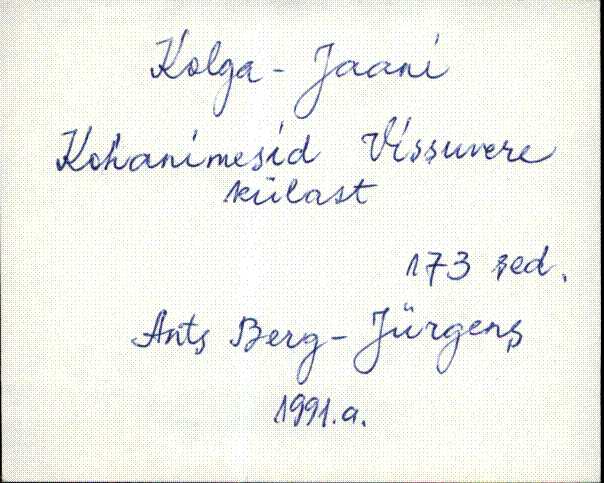 Kolga-Jaani
Kohanimesid Vissuvere
külast
173 sed.
Ants Berg-Jürgens
1991.a.